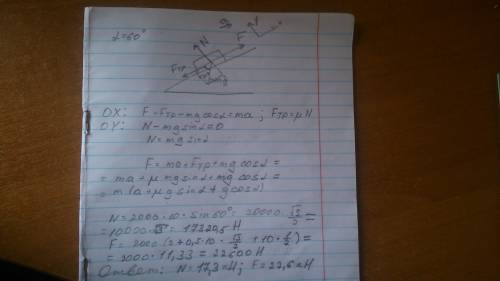 α=60°
N
F
Fтр
y
x
OX: F-Fтр-mgcosα=ma; Fтр=μN
OY: N-mgsinα=0
N=mgsinα
F=ma+Fтр+mgcosα=
=ma+μmgsinα+mgcosα=
=m(a+μgsinα+gcosα)
N=2000·10·sin60°=20000·√3/2=
=10000·√3=17320,5 H
F=2000(2+0,5·10·√3/2+10·1/2)=
=2000·11,33=22600 H
Ответ: N=17,3кН; F=22,6кН